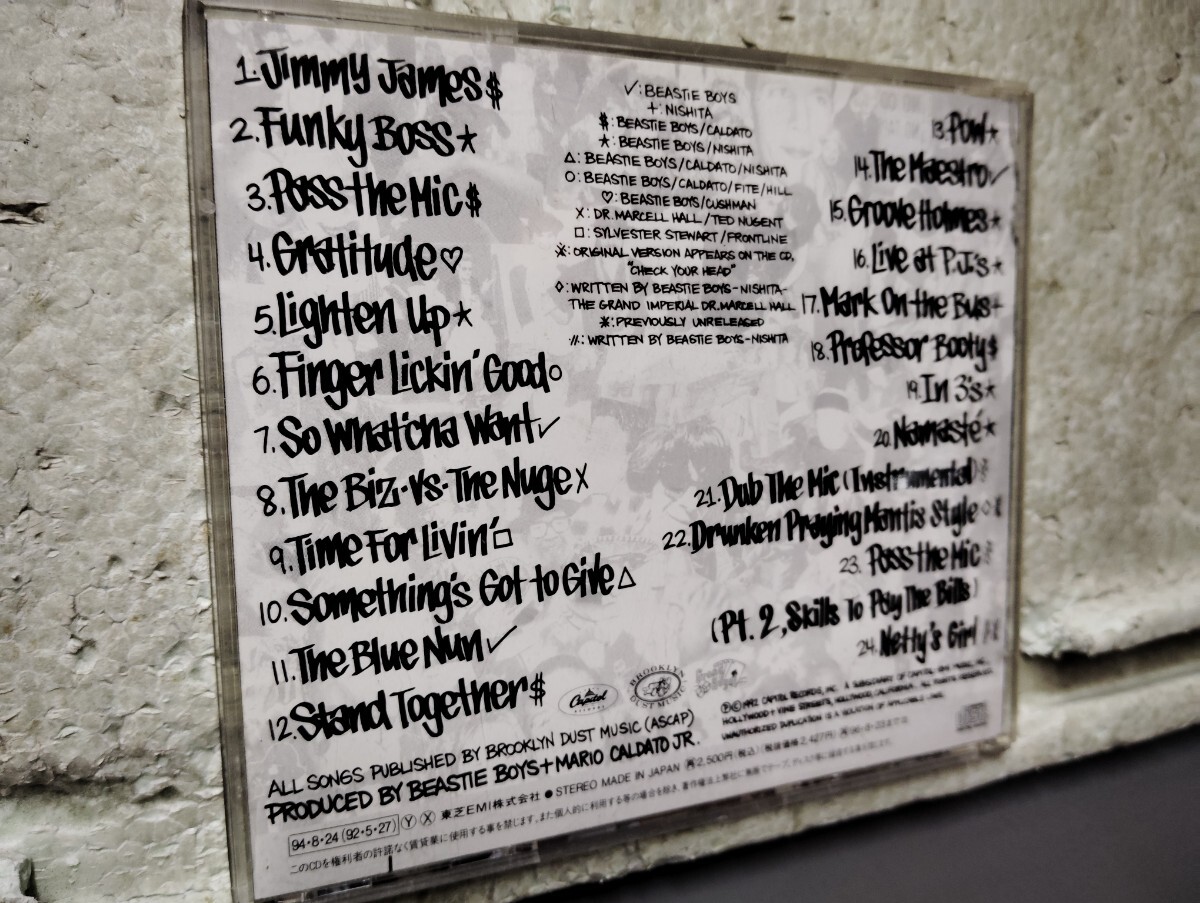 1. Jimmy James $
2. Funky Boss ★
3. Pass the Mic $
4. Gratitude ♡
5. Lighten Up ★
6. Finger Lickin' Good ○
7. So What'cha Want ✓
8. The Biz-Vs-The Nuge X
9. Time For Livin' □
10. Something's Got to Give △
11. The Blue Nun ✓
12. Stand Together $
✓: BEASTIE BOYS
+: NISHITA
$: BEASTIE BOYS/CALDATO
★: BEASTIE BOYS/NISHITA
△: BEASTIE BOYS/CALDATO/NISHITA
○: BEASTIE BOYS/CALDATO/FITE/HILL
♡: BEASTIE BOYS/CUSHMAN
X: DR. MARCELL HALL/TED NUGENT
□: SYLVESTER STEWART/FRONTLINE
※: ORIGINAL VERSION APPEARS ON THE CD.
"CHECK YOUR HEAD"
◇: WRITTEN BY BEASTIE BOYS-NISHITA-
THE GRAND IMPERIAL DR. MARCELL HALL
*: PREVIOUSLY UNRELEASED
//: WRITTEN BY BEASTIE BOYS-NISHITA
13. Pow ★
14. The Maestro ✓
15. Groove Holmes ★
16. Live at P.J.'s ★
17. Mark On the Bus +
18. Professor Booty $
19. In 3's ★
20. Namasté ★
21. Dub The Mic (Instrumental)
22. Drunken Praying Mantis Style ◇
23. Pass the Mic
(Pt. 2, Skills To Pay The Bills)
24. Netty's Girl
Capitol
RECORDS
BROOKLYN
DUST MUSIC
Ⓟ©1992 CAPITOL RECORDS, INC. A SUBSIDIARY OF CAPITOL-EMI MUSIC, INC.,
HOLLYWOOD + VINE STREETS, HOLLYWOOD, CALIFORNIA. ALL RIGHTS RESERVED.
UNAUTHORIZED DUPLICATION IS A VIOLATION OF APPLICABLE LAWS.
ALL SONGS PUBLISHED BY BROOKLYN DUST MUSIC (ASCAP)
PRODUCED BY BEASTIE BOYS + MARIO CALDATO JR.
94・8・24 (92・5・27) Ⓨ Ⓧ 東芝EMI株式会社 ● STEREO MADE IN JAPAN 2,500円(税込)(税抜価格2,427円)
このCDを権利者の許諾なく賃貸業に使用する事を禁じます。また個人的に利用する等の場合を除き、著作権法上無断